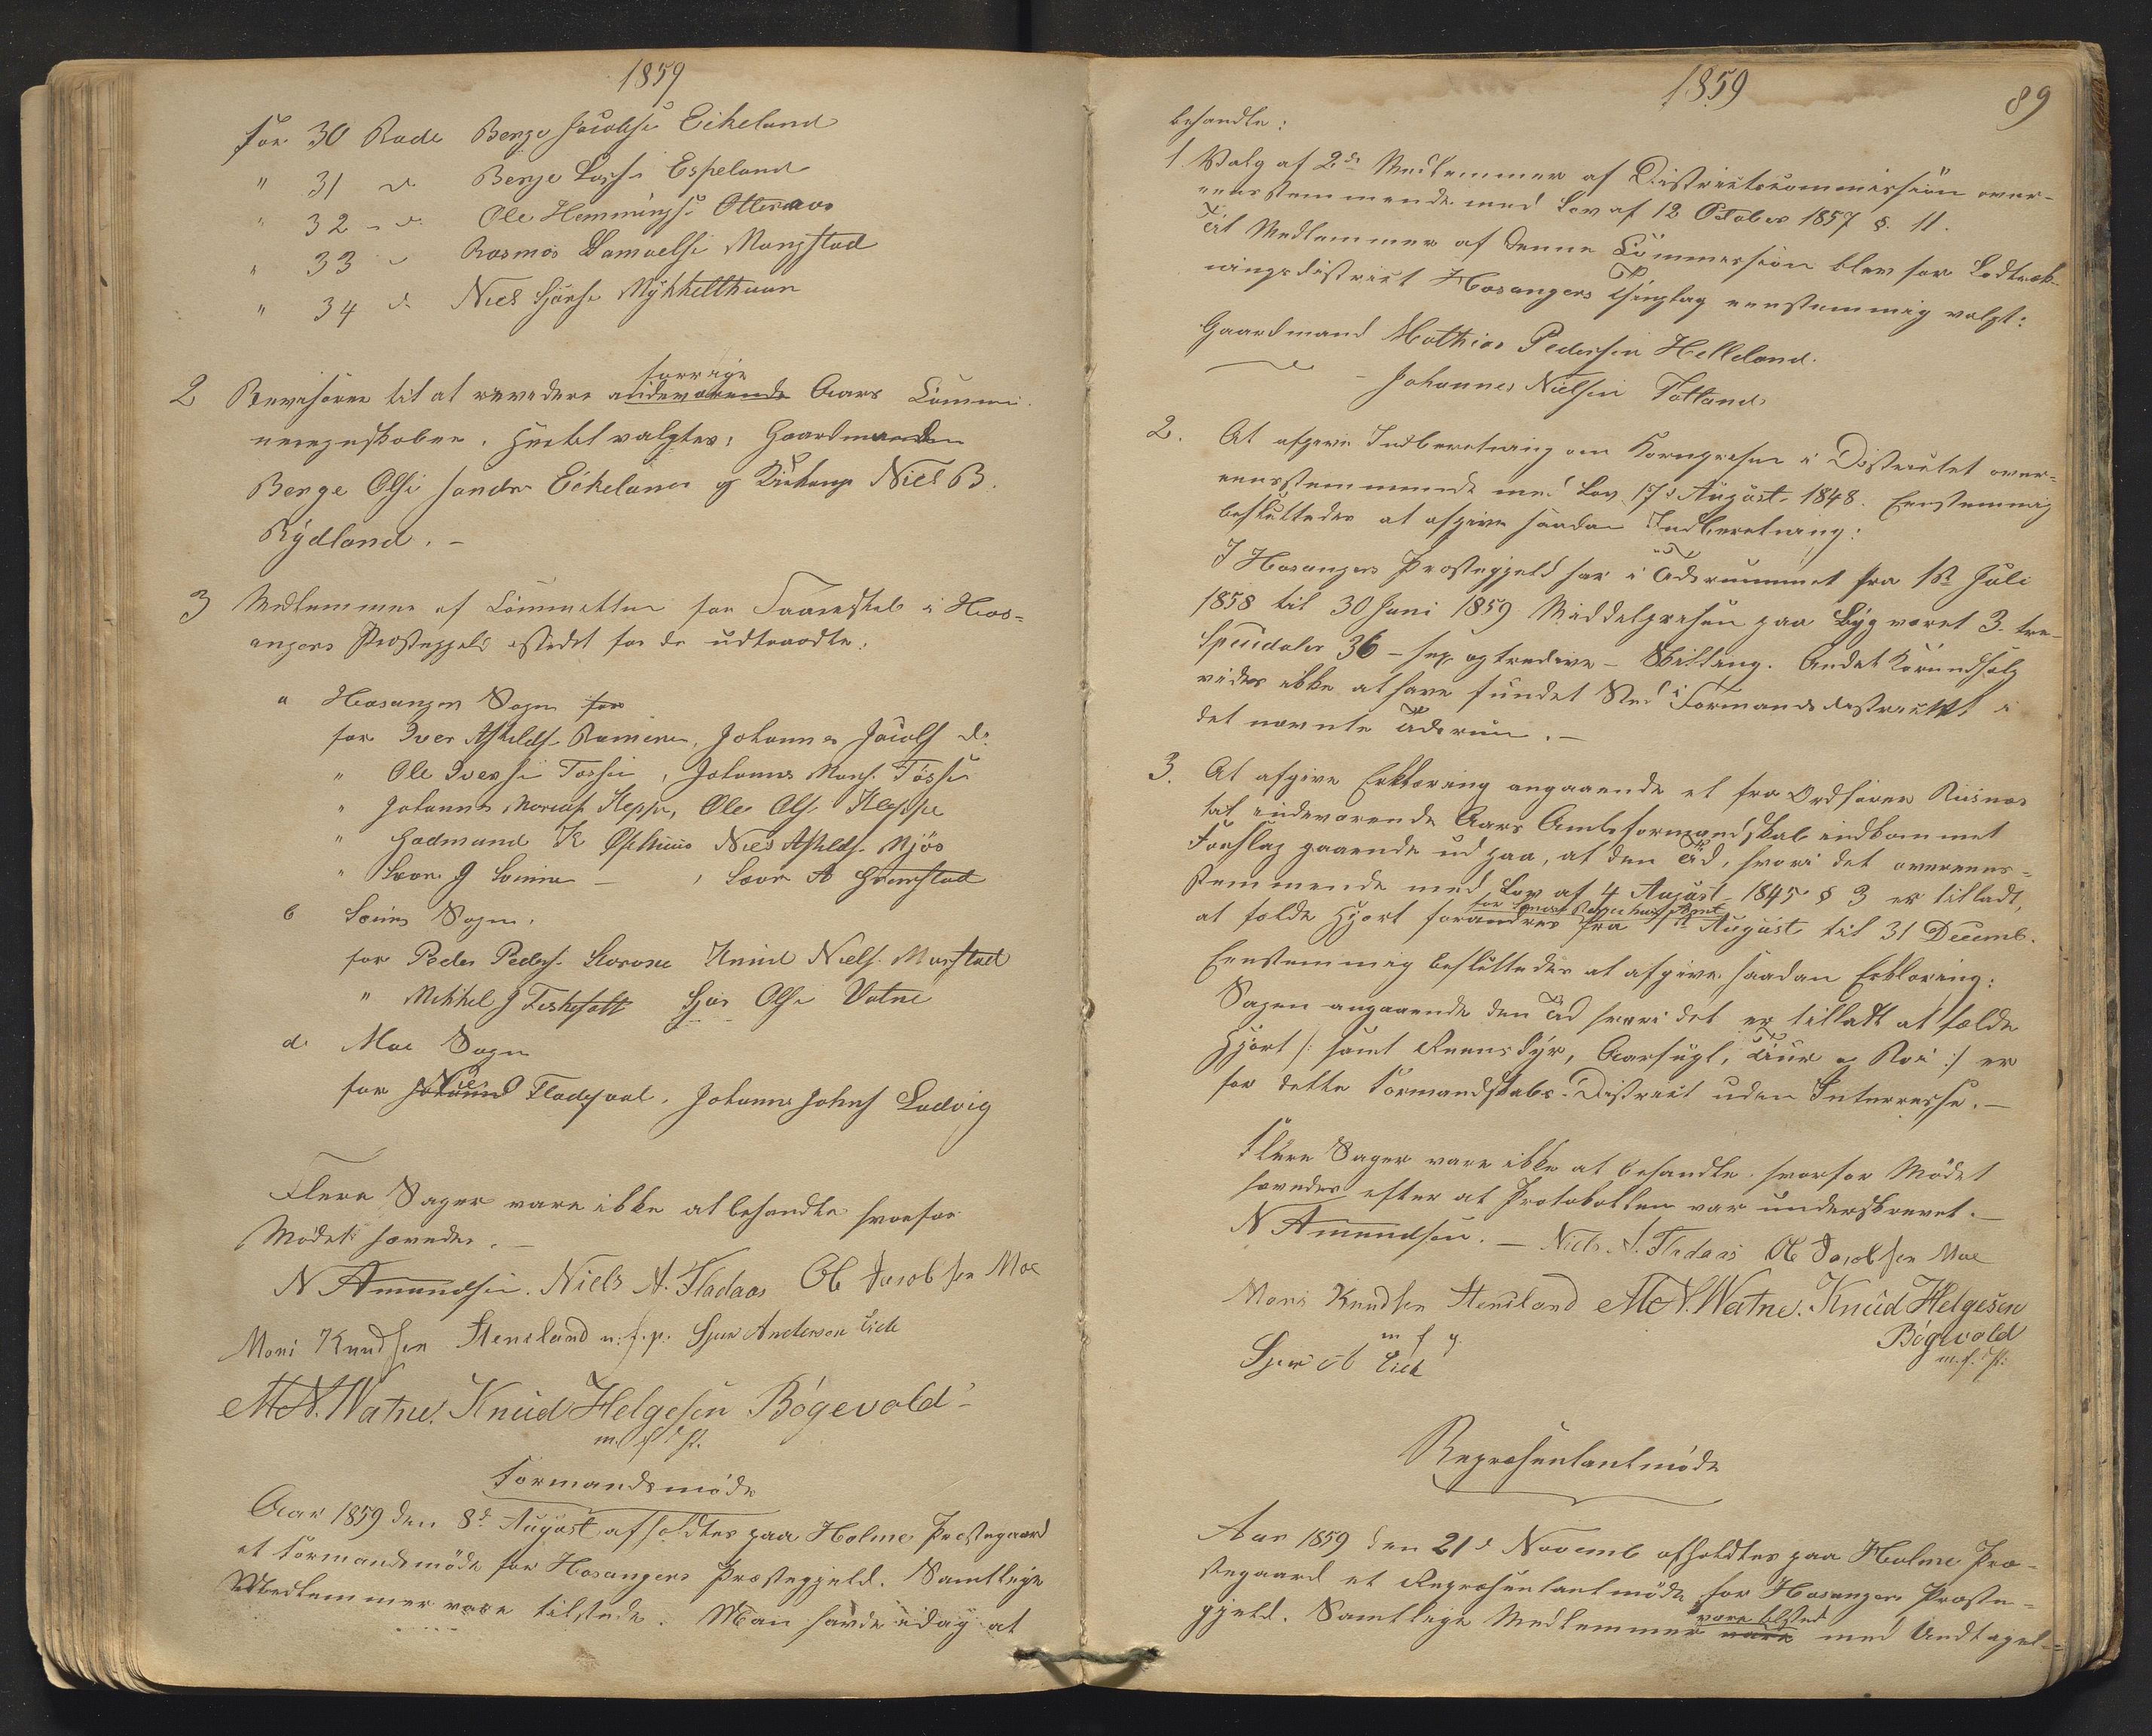 1859
for 30 Rode Berge Jacobse Eikeland
" 31 do Berge Larse Espeland
" 32 - do Ole Hemmingse Otteraas
" 33 do Rasmos Samuelse Mangstad
" 34 do Niels Sjurse Mykkelthuun
2 Revisorer til at revidere indeværende forrige Aars Commu-
neregnskaber. Hertil valgtes: Gaardmanden
Berge Olse Eikeland og Niels B.
Rydland. -
3 Medlemmer af Committeen for i Hos=
angers Præstegjeld istedet for de udtraadte:
a Hosanger Sogn for
for Iver Askilds. Johannes Jacobs do
" Ole Iverse Tosse, Johannes Mons. Tosse
" Johannes Kleppe, Ole Ols. Kleppe
" Gudmund K Niels Askilds. Mjøs
" Lars A
b Sogn.
for Peder Peders. Knud Niels. Marstad
" Mikkel J Ols Vatne
d. Moe Sogn
for Johannes Johns Ludvig
Flere Sager vare ikke at behandle hvorfor
Mødet hævedes. -
N Amundsen. Niels A. Fladaas Ole Jacobsen Moe
Mons Knudsen Steensland m.f.p. Sjur Anderson Eide
M N. Watne. Knud Helgesen Bøgevold
m. f. P.
Formandsmøde
Aar 1859 den 8de August afholdtes paa Holme Præstegaard
et Formandsmøde for Hosangers Præstegjeld. Samtlige
Medlemmer vare tilstede. Man havde idag at
1859
89
behandle:
1 Valg af 2de Medlemmer af Districtscommission over-
eensstemmende med Lov af 12 October 1857 §. 11.
Til Medlemmer af denne Commission blev for Lodtræk-
ningsdistrict Hosangers Thinglag eenstemmig valgt:
Gaardmand Mathias Pedersen Helleland.
do - Johannes Nielsen Totland
2. At afgive Indberetning om Kornprisen i Districtet over-
eensstemmende med Lov 17de August 1848. Eenstemmig
besluttedes at afgive saadan Indberetning:
I Hosangers Præstegjeld har i Tidsrummet fra 1ste Juli
1858 til 30 Juni 1859 Middelprisen paa Byg været 3 - tre -
Speciedaler 36 - sex og tredive - Skilling. Andet Kornudsalg
vides ikke at have fundet Sted i Formandsdistrictet i
det nævnte Tidsrum. -
3. At afgive Erklæring angaaende et fra Ordfører Riisnæs
til indeværende Aars Amtsformandskab indkommet
Forslag gaaende ud paa, at den Tid, hvori det overeens-
stemmende med Lov af 4 August 1845 § 3 er tilladt,
at fælde Hjort forandres for Søndre Bergenhuus Amt fra 1ste August til 31 Decemb.
Eenstemmig besluttedes at afgive saadan Erklæring:
Sagen angaaende den Tid hvori det er tilladt at fælde
Hjort /: samt Reensdyr, Aarfugl, Tiur og Røi :/ er
for dette Formandskabs-District uden Interesse. -
Flere Sager vare ikke at behandle hvorfor Mødet
hævedes efter at Protokollen var underskrevet. -
N Amundsen. - Niels A. Fladaas Ole Jacobsen Moe
Mons Knudsen Steensland M N. Watne. Knud Helgesen
m f p. Bøgevold
Sjur A Eide m. f. P.
Repræsentantmøde
Aar 1859 den 21de Novemb afholdtes paa Holme Præ-
stegaard et Repræsentantmøde for Hosangers Præste-
gjeld. Samtlige Medlemmer vare vare tilsted med Undtagel-